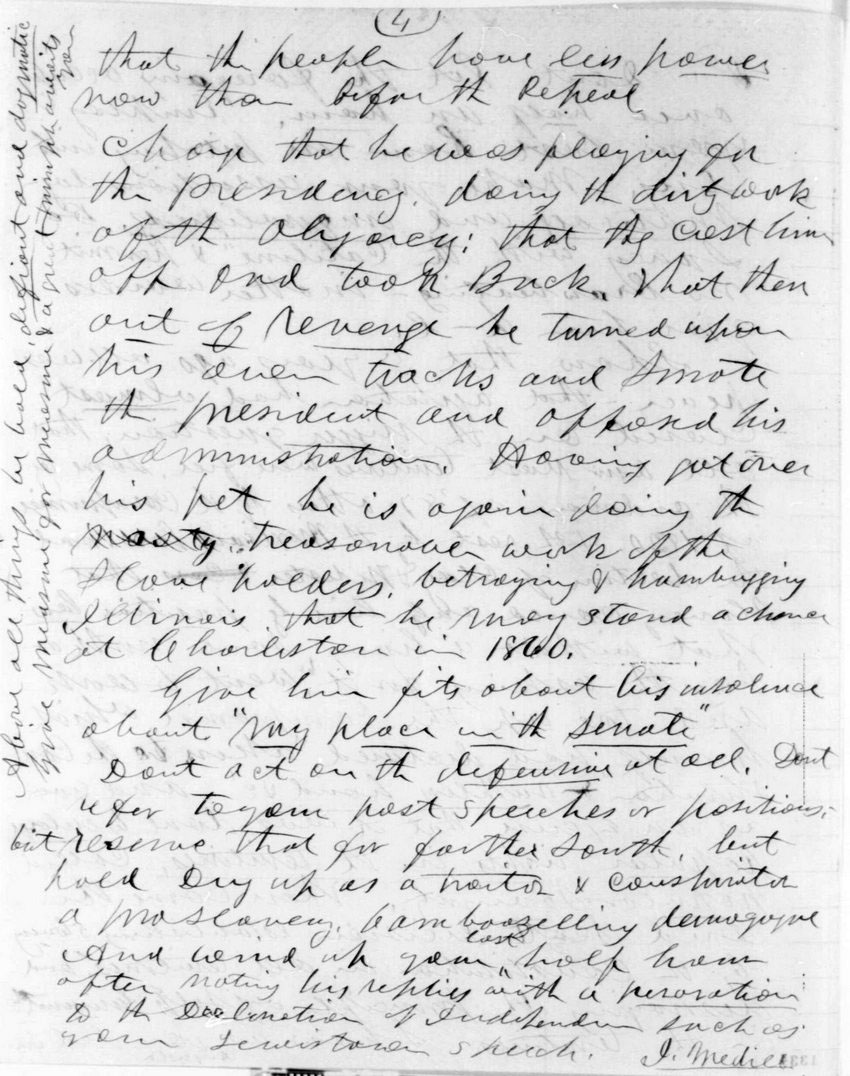 (4)
that the people have less power
now than before the Repeal
Charge that he was playing for
the Presidency, doing the dirty work
of the Oligarcy; that they cast him
off and took Buck, that then
out of revenge he turned upon
his own tracks and smote
the President and opposed his
administration. Having got over
his pet he is again doing the
nasty treasonable work of the
Slave holders, betraying & humbugging
Illinois, that he may stand a chance
at Charleston in 1860.
Give him fits about his insolence
about "my place in the Senate"
Dont act on the defensive at all. Dont
refer to your past speeches or positions,
but reserve that for farther South, but
hold Dug up as a traitor & conspirator
a proslavery, bamboozelling demogogue
And wind up your last half hour
after noting his replies with a peroration
to the Declaration of Independence such as
your Lewistown speech. J. Medill
Above all things be bold, defiant and dogmatic
give measure for measure & a great triumph awaits
you